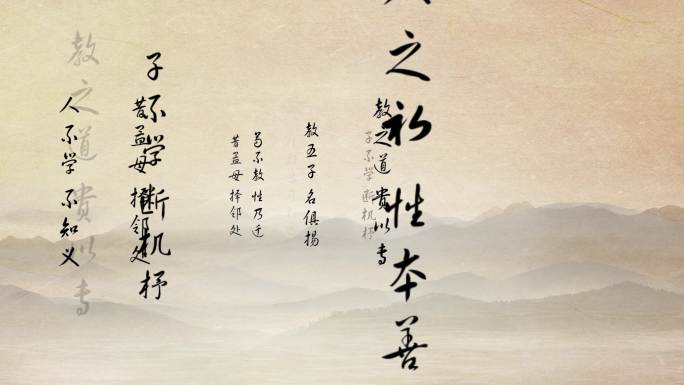 人之初性本善
教之道贵以专
子不学断机杼
教五子名俱揚
苟不教性乃迁
昔孟母择邻处
子不学断机杼
昔孟母择邻处
教之道贵以专
人不学不知义